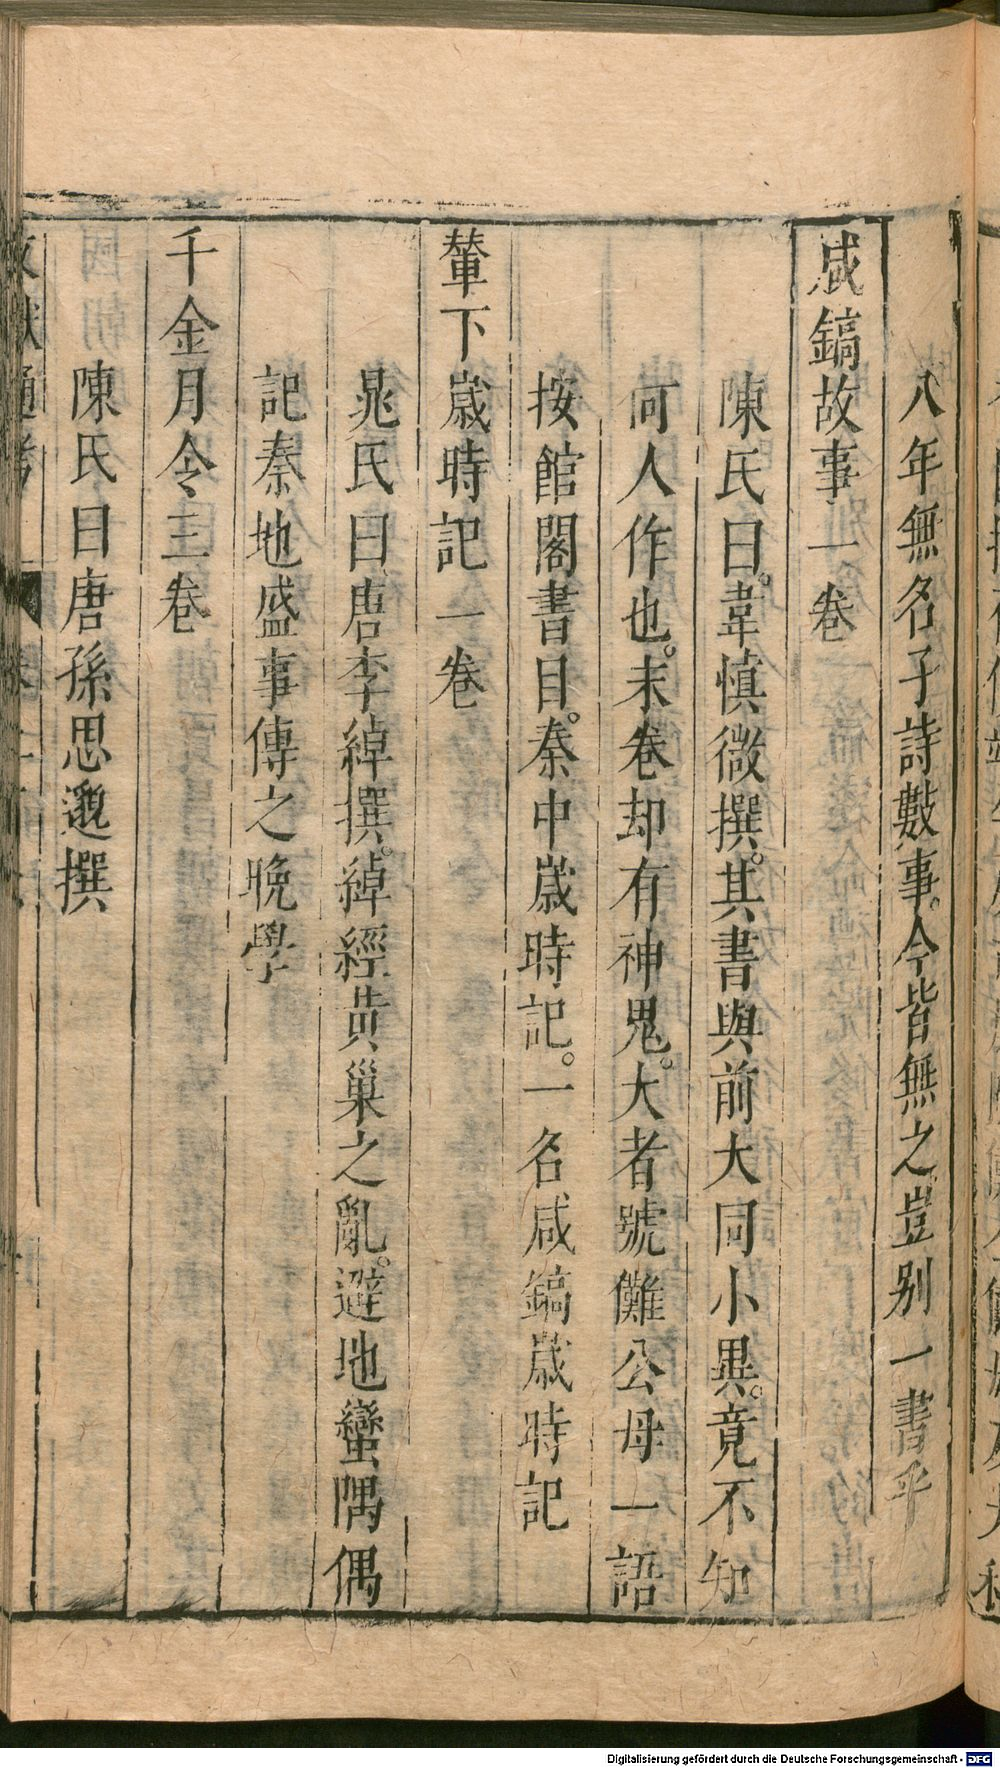 八年無名子詩數事。今皆無之。豈别一書乎
咸鎬故事一卷
陳氏曰。韋慎微撰。其書與前大同小異。竟不知
何人作也。末卷却有神鬼。大者號儺公母一語
按館閣書目。秦中歲時記。一名咸鎬歲時記
輦下歲時記一卷
晁氏曰唐李綽撰。綽經黃巢之亂。避地蠻隅偶
記秦地盛事傳之晚學
千金月令三卷
陳氏曰唐孫思邈撰
文獻通考
Digitalisierung gefördert durch die Deutsche Forschungsgemeinschaft - DFG